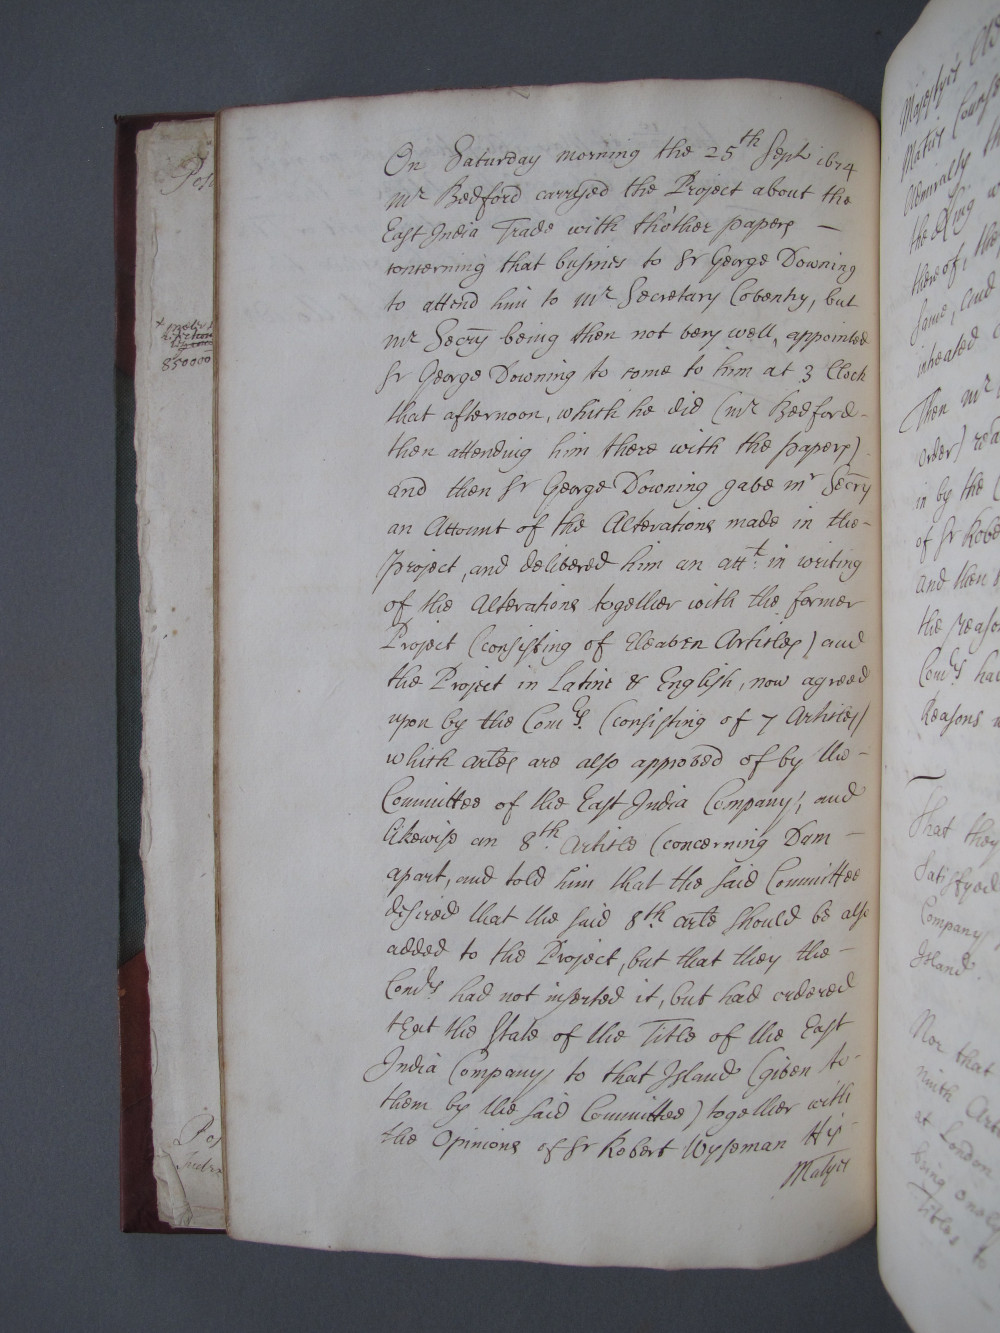 On Saturday morning the 25th Sept 1674
Mr Bedford carryed the Project about the
East India Trade with th'other papers —
concerning that busines to Sr George Downing
to attend him to Mr Secretary Coventry, but
Mr Secry being then not very well, appointed
Sr George Downing to come to him at 3 Clock
that afternoon, which he did (Mr Bedford -
then attending him there with the papers) -
and then Sr George Downing gave Mr Secry
an Account of the Alterations made in the -
Project, and delivered him an acct. in writing
of the Alterations together with the former
Project (consisting of Eleaven Articles) and
the Project in Latine & English, now agreed
upon by the Comrs. (consisting of 7 Articles)
which artes are also approved of by the -
Committee of the East India Company, and
likewise an 8th. Article (concerning Dam —
apart, and told him that the said Committee
desired that the said 8th. arte should be also
added to the Project, but that they the -
Comrs had not inserted it, but had ordered
that the State of the Title of the East
India Company to that Island (given to -
them by the said Committee) together with
the Opinions of Sr Robert Wyseman His -
Matyes
850000
Majesty's
Maties
Admiralty
the King
thereof, the
same, and
Then Mr
order)
in by the
of Sr Robe
And then
the reaso
Comrs had
Reasons
That they
Satisfyed
Company
Island.
Nor that
ninth Arti
at London
being only
Titles to